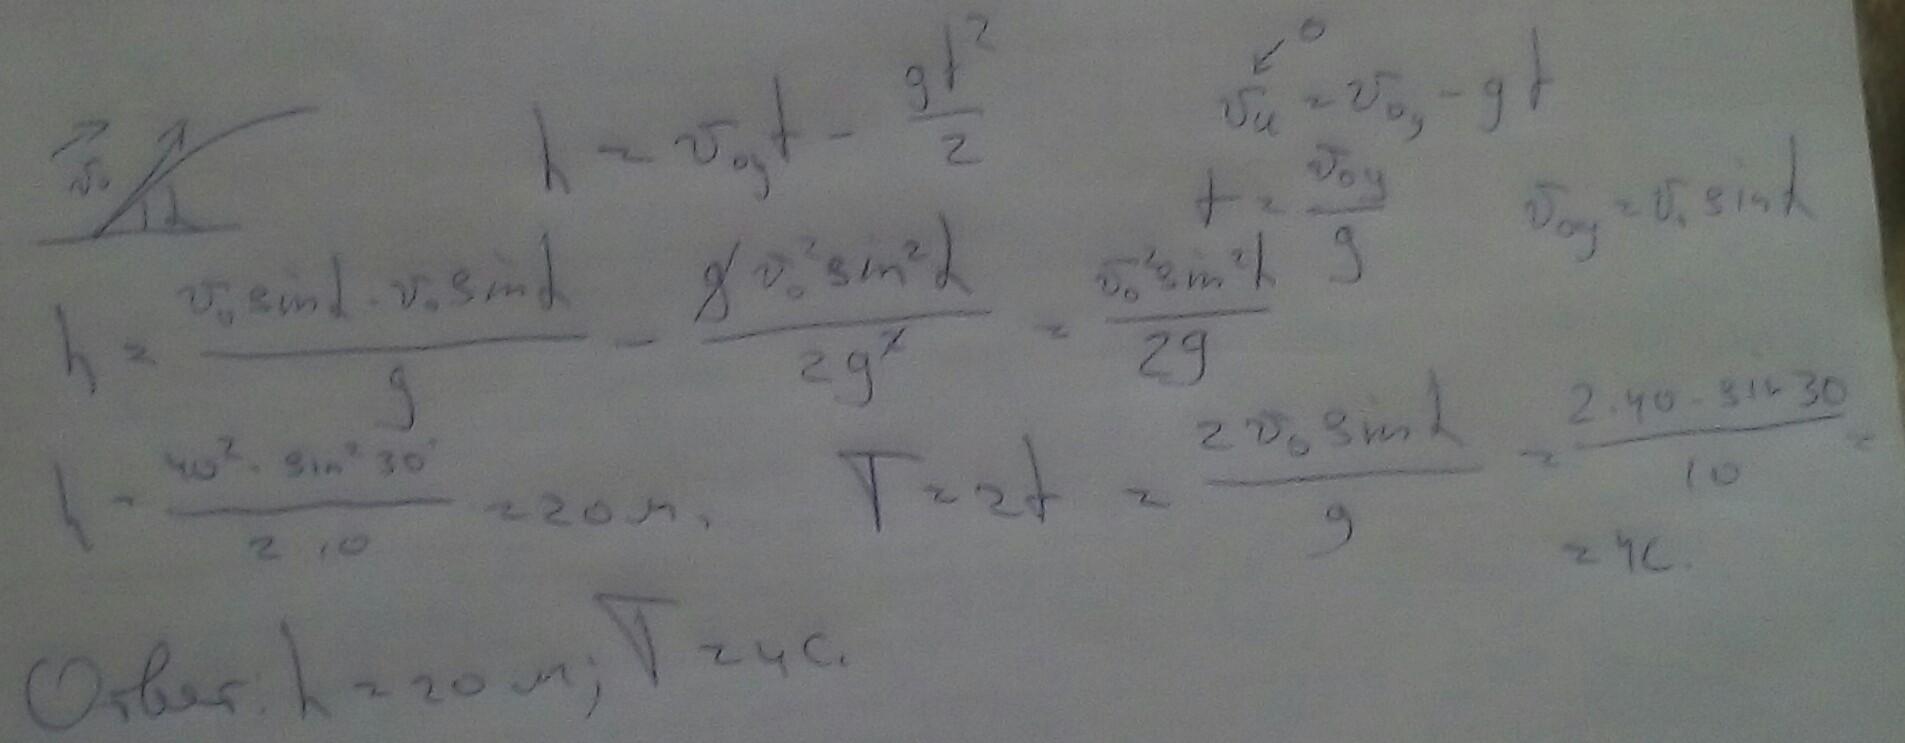 v⃗₀ α h = v₀y t - gt²/2 vy = v₀y - gt 0
t = v₀y/g v₀y = v₀ sinα
h = v₀ sinα · v₀ sinα / g - g v₀² sin²α / 2g² = v₀² sin²α / 2g
h = 40² · sin² 30° / 2 · 10 = 20 м. T = 2t = 2 v₀ sinα / g = 2 · 40 · sin 30 / 10 =
= 4с.
Ответ: h = 20 м; T = 4 с.